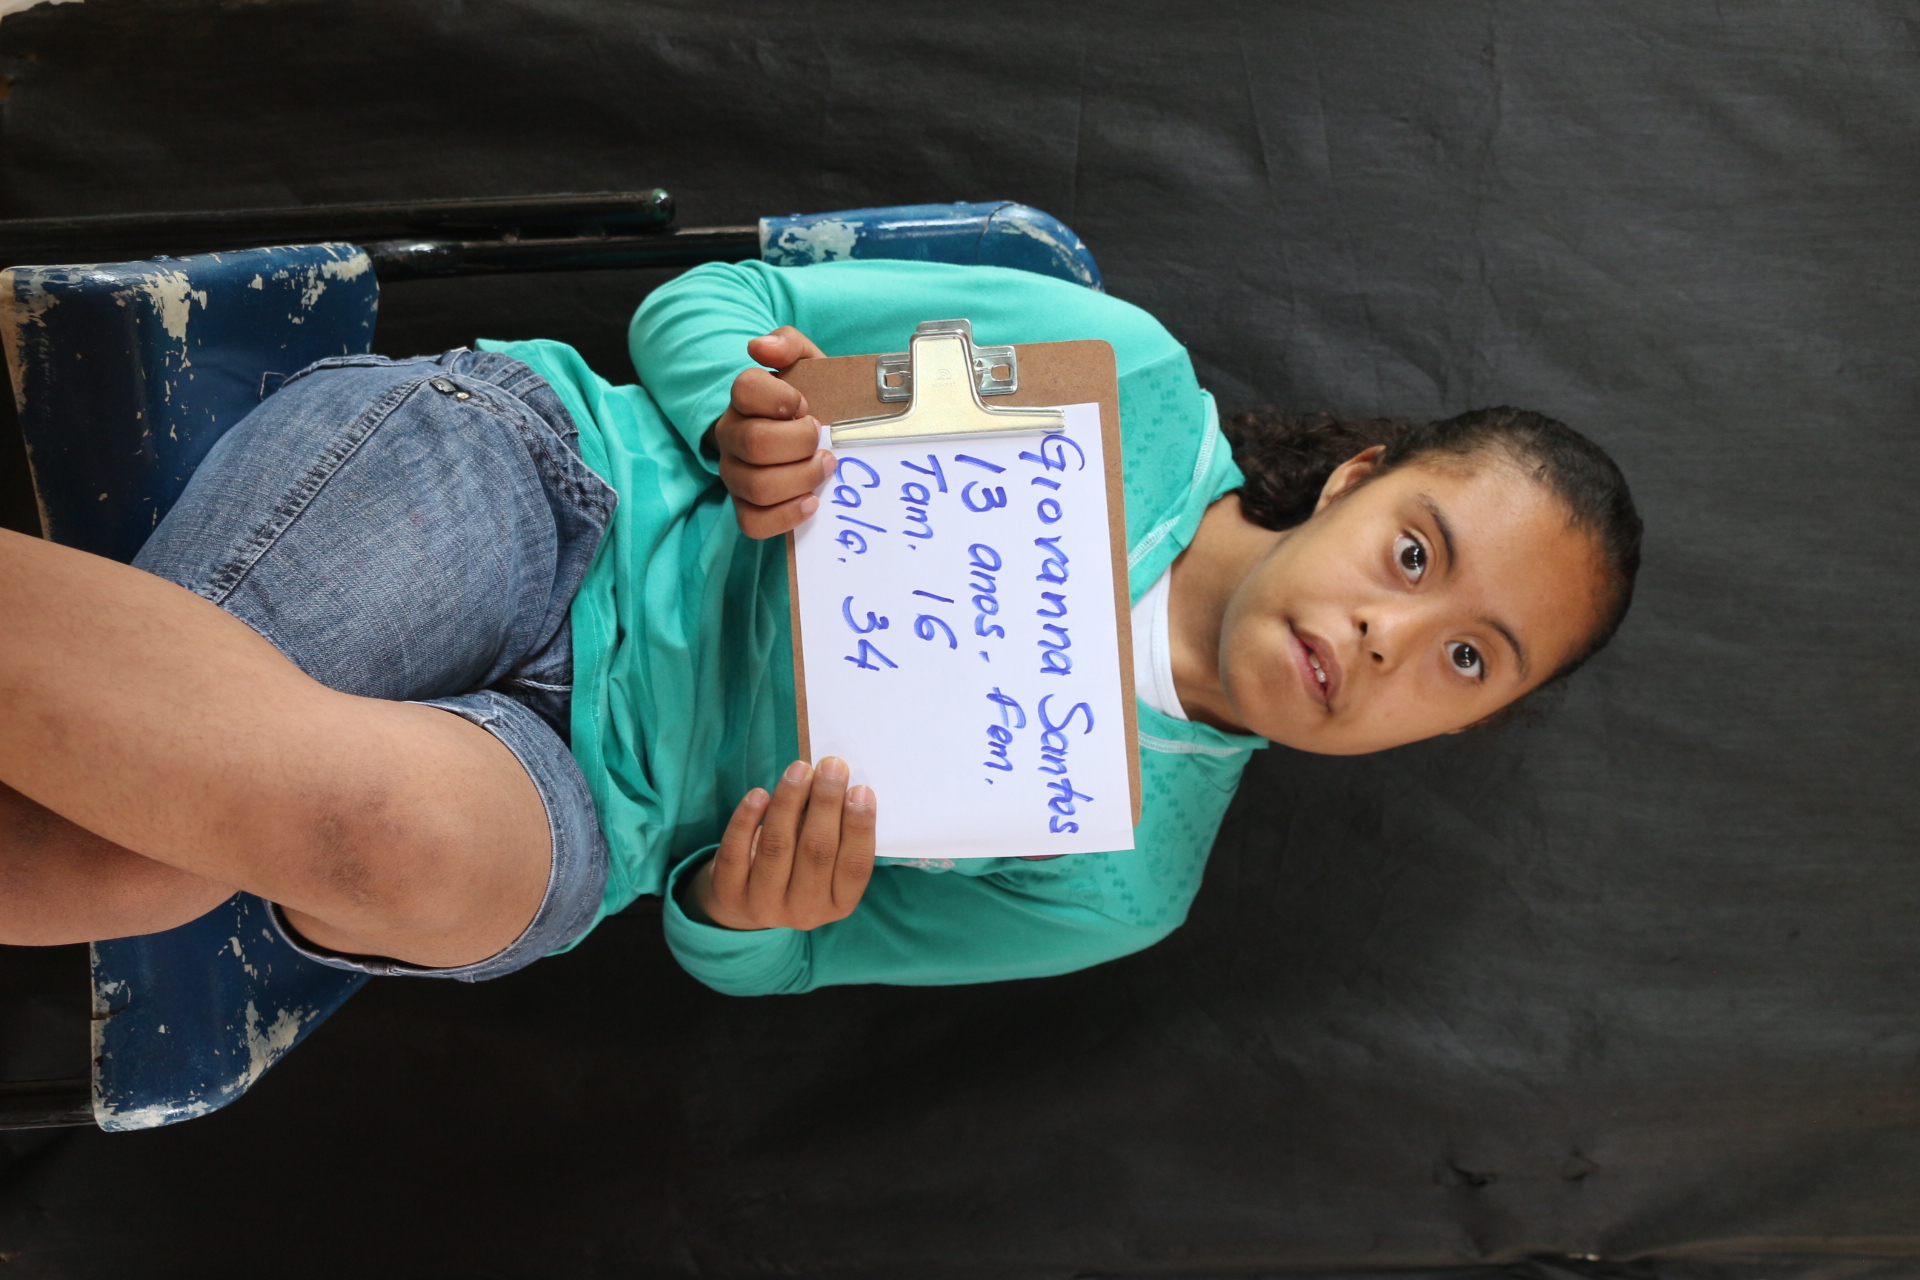 Giovanna Santos
13 anos. Fem.
Tam. 16
Calç. 34